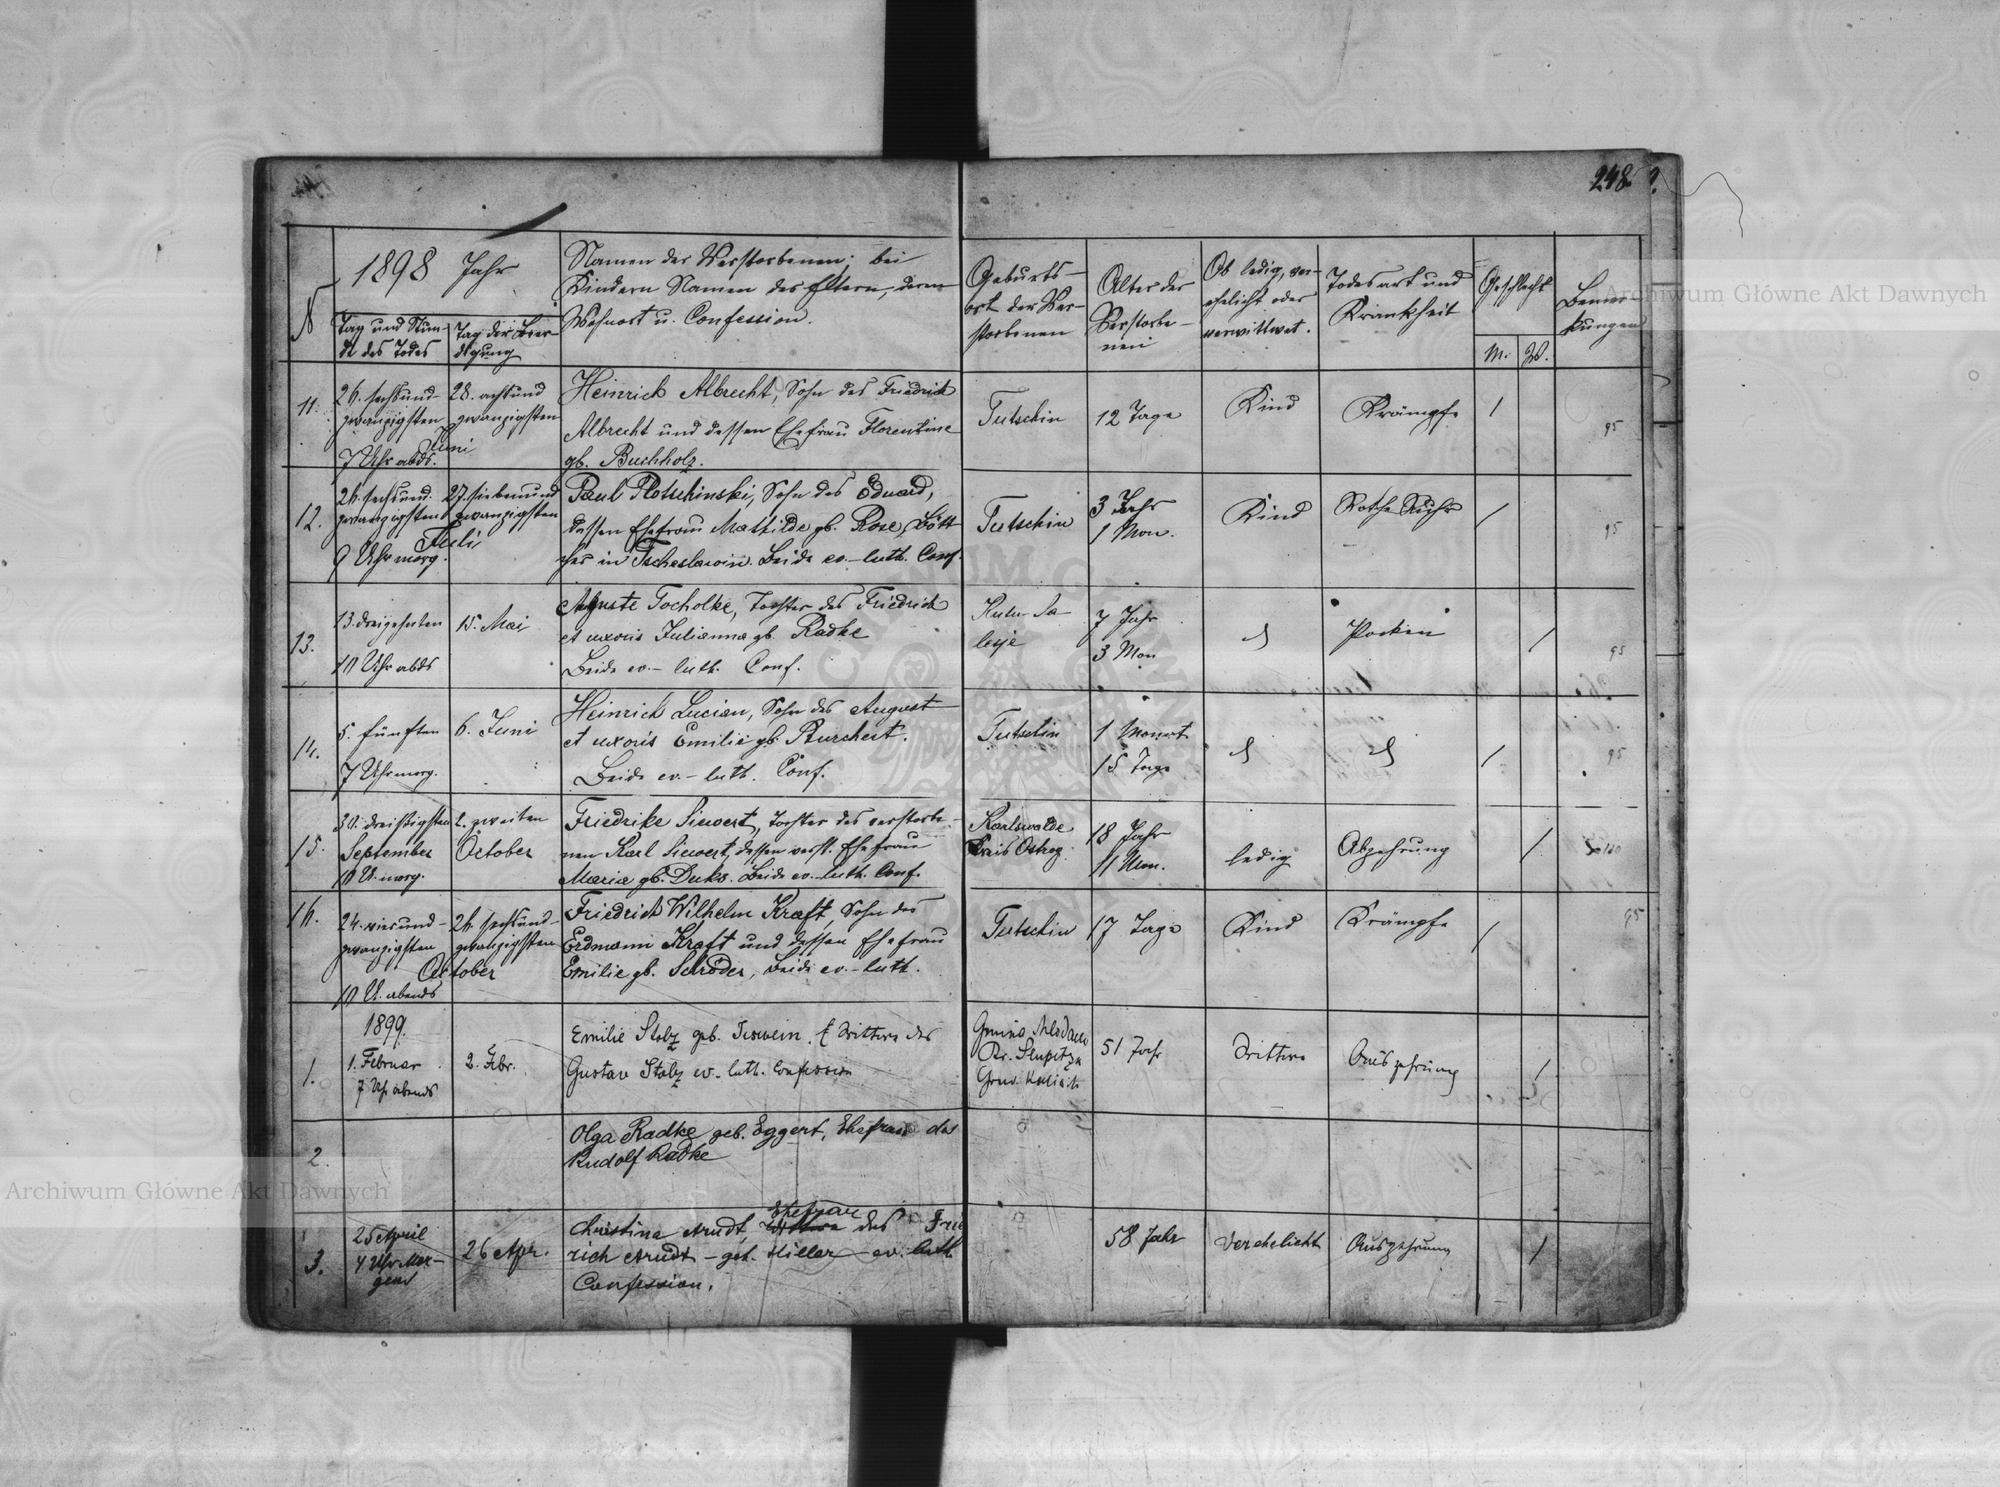 248
1898 Jahr
Tag und Stun-
de des Todes
Tag der Beer-
digung
Namen der Verstorbenen; bei
Kindern Namen der Eltern, deren
Wohnort u. Confession.
Geburts-
ort der Ver-
storbenen
Alter der
Verstorbe-
nen
Ob ledig, ver-
ehelicht oder
verwittwet.
Todesart und
Krankheit
Geschlecht
M. W.
Bemer-
kungen
11.
26. sechsund-
zwanzigsten
Juni
7 Uhr abds.
28. achtund
zwanzigsten
Heinrich Albrecht, Sohn des Friedrich
Albrecht und dessen Ehefrau Florentine
gb. Buchholz.
Tutschin
12 Tage
Kind
Krämpfe
/
95
12.
26. sechsund-
zwanzigsten
Juli
9 Uhr morg.
27. siebenund
zwanzigsten
Paul Plotschinski, Sohn des Eduard,
dessen Ehefrau Mathilde gb. Rose, Bött-
cher in Tscheslawin. Beide ev.-luth. Conf.
Tutschin
3 Jahr
1 Mon.
Kind
Rothe Ruhr
/
95
13.
13. dreizehnten
10 Uhr abds
15. Mai
Auguste Tocholke, Tochter des Friedrich
et uxoris Julianna gb. Radke
Beide ev.- luth. Conf.
7 Jahr
3 Mon
Pocken
/
95
14.
5. fünften
7 Uhr morg.
6. Juni
Heinrich Lucian, Sohn des August
et uxoris Emilie gb. Burchert.
Beide ev.- luth. Conf.
Tutschin
1 Monat
15 Tage
/
95
15.
30. dreißigsten
September
10 U. morg.
2. zweiten
October
Friedrike Siewert, Tochter des verstorbe-
nen Karl Siewert, dessen verst. Ehefrau
Maria gb. Duks. Beide ev.-luth. Conf.
Karlswalde
Kreis Ostrog.
18 Jahr
11 Mon.
ledig
Abzehrung
/
16.
24. vierund-
zwanzigsten
October
10 U. abends
26. sechsund-
zwanzigsten
Friedrich Wilhelm Kraft, Sohn des
Erdmann Kraft und dessen Ehefrau
Emilie gb. Schröder, Beide ev.-luth.
Tutschin
17 Tage
Kind
Krämpfe
/
95
1899.
1.
1. Februar
7 Uhr abends
2. Febr.
Emilie Stolz geb. Wittwe des
Gustav Stolz ev.-luth. Confession
Gmina
Gouv. Kalisch
51 Jahr
Wittwe
Auszehrung
/
2.
Olga Radke geb. Eggert, Ehefrau des
Rudolf Radke
3.
25 April
4 Uhr Mor-
gens
26 Apr.
Christina Arndt, Ehefrau des Fried
rich Arndt - geb. Hiller ev. luth
Confession.
58 Jahr
Verehelicht
Auszehrung
/
Archiwum Główne Akt Dawnych
Archiwum Główne Akt Dawnych